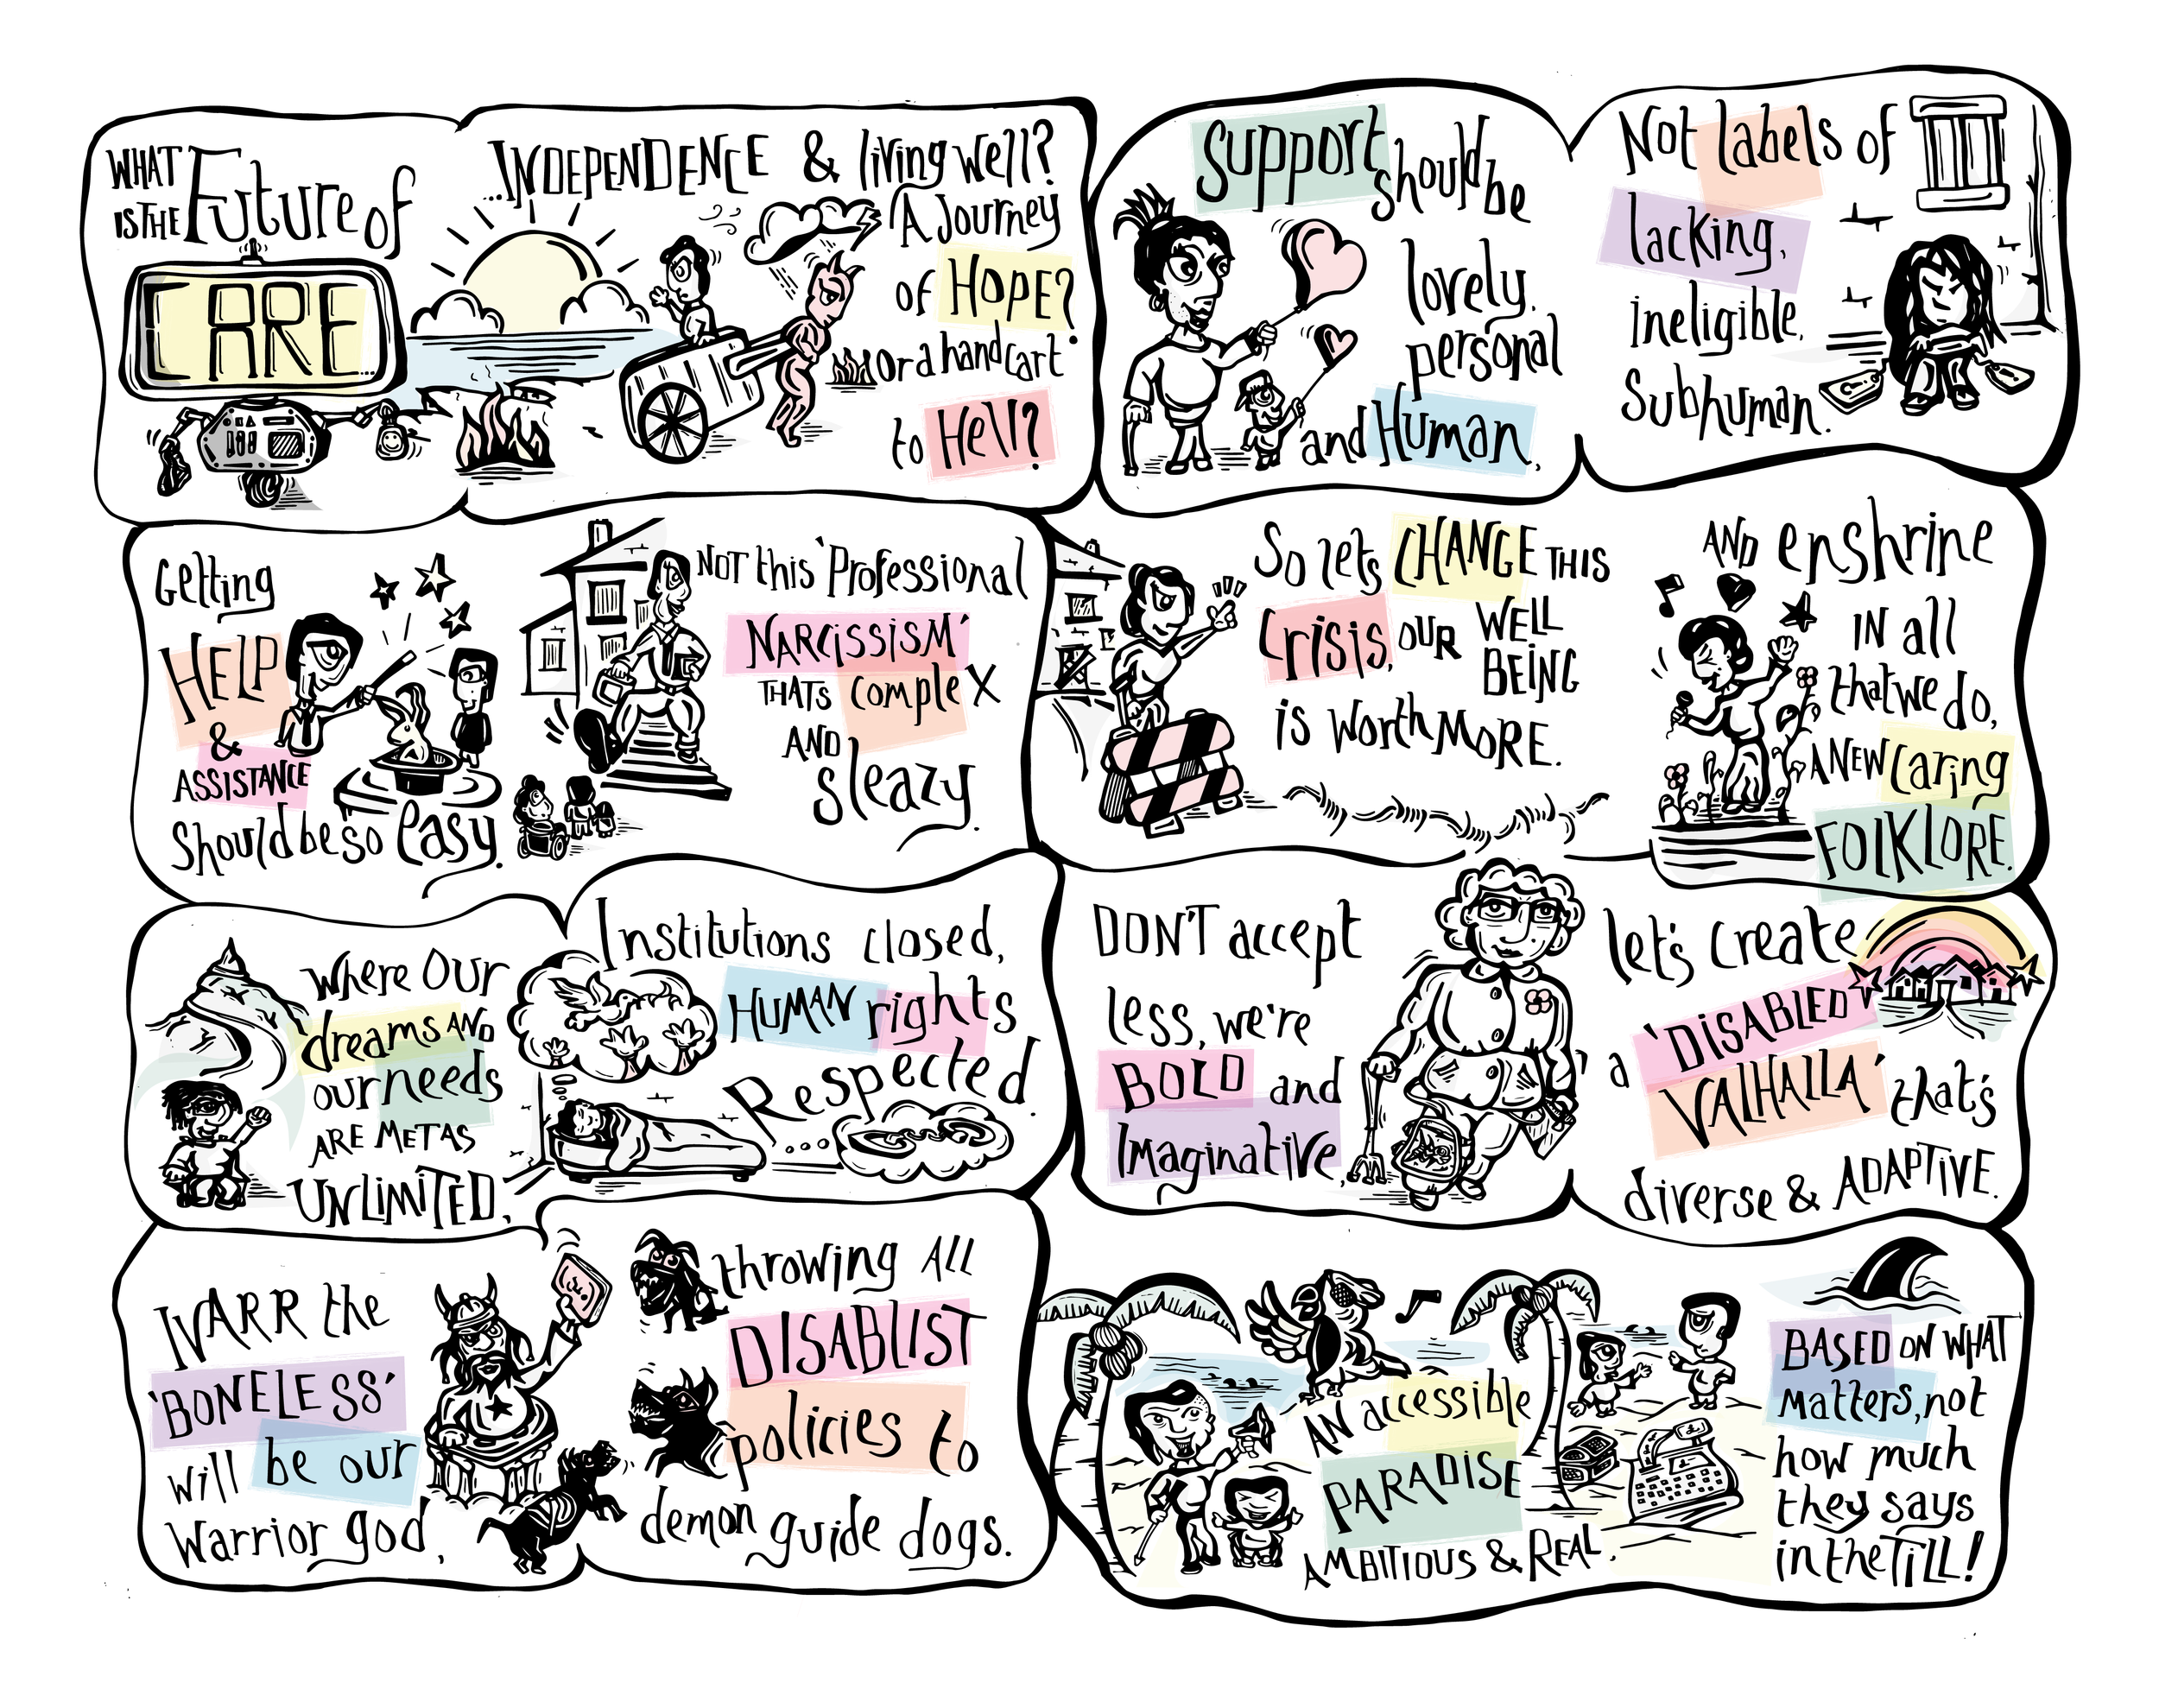 WHAT
IS THE Future of
CARE...
...INDEPENDENCE & living well?
A Journey
of HOPE?
Or a handcart
to Hell?
Support should be
lovely.
personal
and Human,
Not labels of
lacking,
ineligible,
Subhuman.
Getting
HELP
&
ASSISTANCE
Should be so easy.
NOT this 'Professional
NARCISSISM'
THATS complex
AND
sleazy.
So lets CHANGE THIS
Crisis, OUR WELL
BEING
is worth MORE.
AND enshrine
IN all
that we do,
A NEW Caring
FOLKLORE.
Where Our
dreams AND
our needs
ARE METAS
UNLIMITED,
Institutions closed,
HUMAN rights
Respected.
DON'T accept
less, we're
BOLD and
Imaginative,
let's create
a 'DISABLED
VALHALLA' that's
diverse & ADAPTIVE.
IVARR the
'BONELESS'
will be our
warrior god,
throwing ALL
DISABLIST
policies to
demon guide dogs.
AN accessible
PARADISE
AMBITIOUS & REAL,
BASED ON WHAT
matters, not
how much
they says
in the TILL!